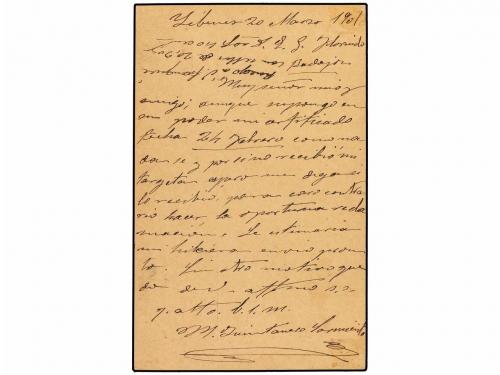 Yébenes 20 Marzo 1901
Sor D. E. G. Florindo
Badajoz
Muy señor mio y
amigo; aunque supongo en
su poder mi certificado
fecha 24 Febrero como na
da se y por si no recibió mi
targeta espero me diga si
lo recibió, para caso contra
rio hacer la oportuna recla
mación. Le estimaria
me hiciera envio pron
to. Sin otro motivo que
do de V. affmo s. s.
q. atto. b. s. m.
M. Quintanero Sarmiento